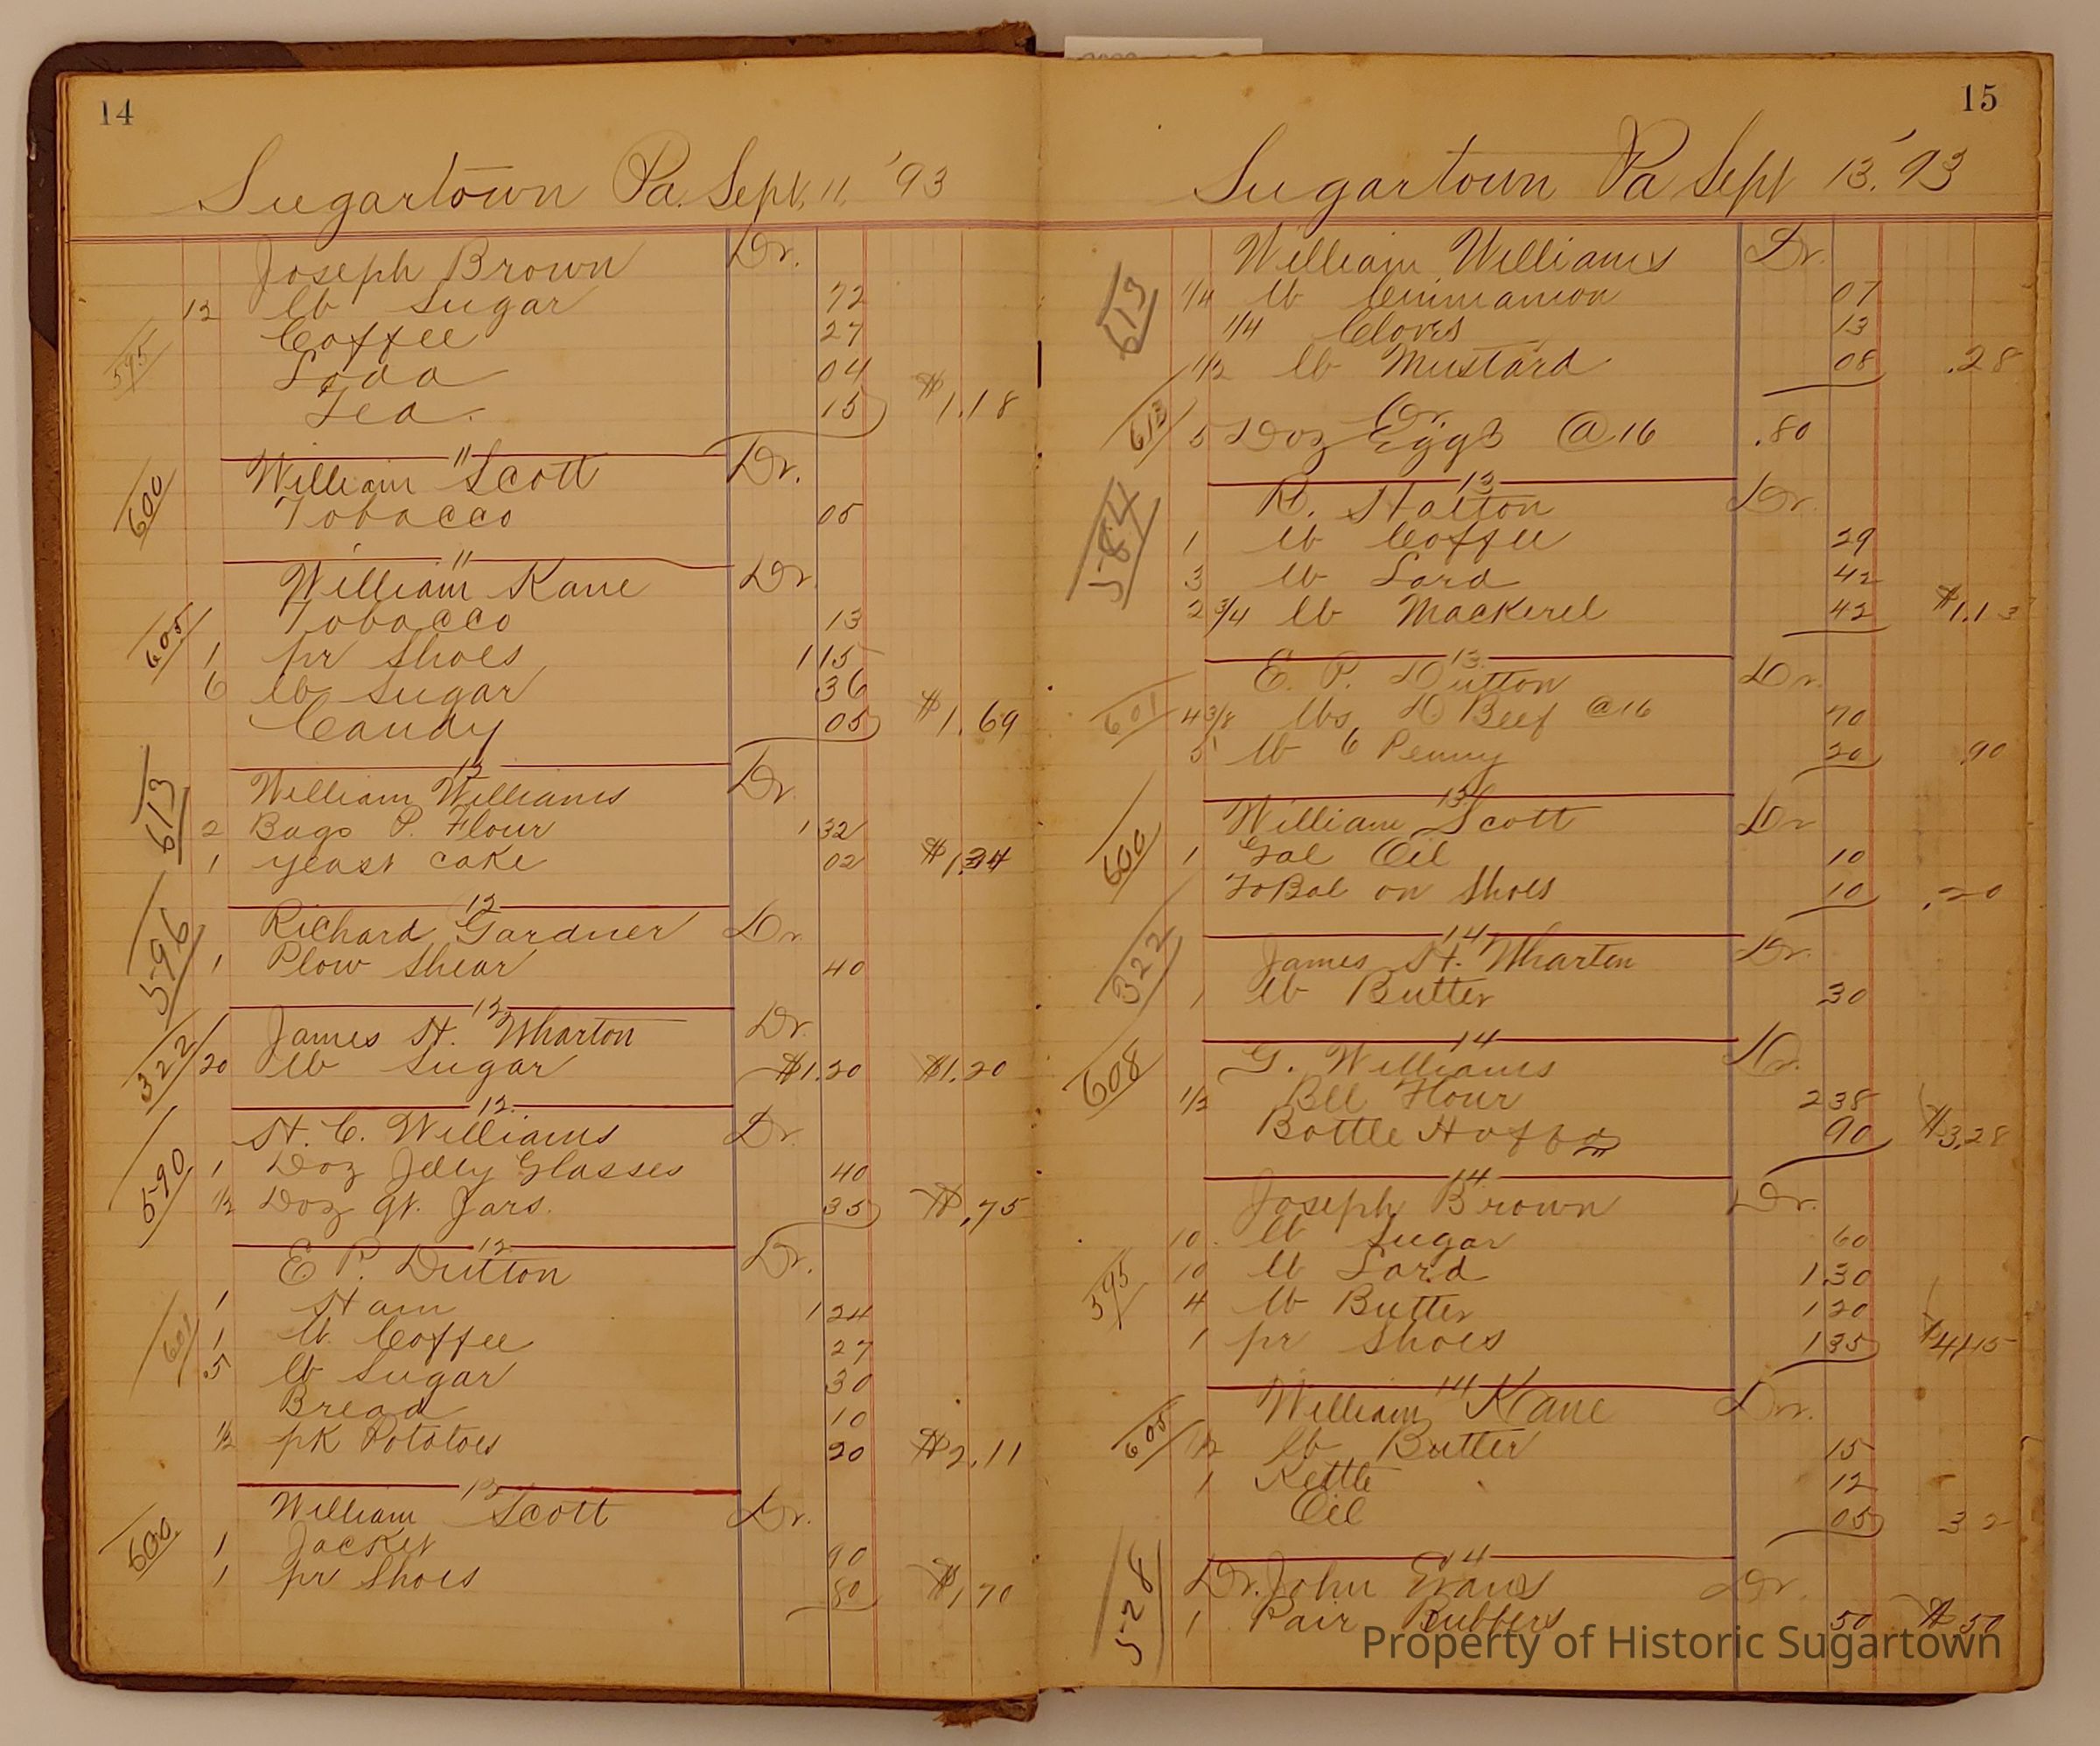 14
Sugartown Pa. Sept, 11, '93
Joseph Brown Dr.
12 lb Sugar 72
Coffee 27
595 Soda 04
Tea. 15 $1.18
11
600 William Scott Dr.
Tobacco 05
11
William Kane Dr.
Tobacco 13
605 1 pr Shoes 1 15
6 lb Sugar 36
Candy 05 $1.69
12
613 William Williams Dr.
2 Bags P. Flour 1 32
1 yeast cake 02 $1.34
12
596 Richard Gardner Dr.
1 Plow Shear 40
12
322 James H. Wharton Dr.
20 lb Sugar $1.20 $1.20
12.
590 H. C. Williams Dr.
1 Doz Jelly Glasses 40
1/2 Doz qt. Jars. 35 $.75
12
E P. Dutton Dr.
1 Ham 1 24
601 1 lb. Coffee 27
5 lb Sugar 30
Bread 10
1/2 pk Potatoes 20 $2.11
12
600 William Scott Dr.
1 Jacket 90
1 pr Shoes 80 $1,70
15
Sugartown Pa Sept 13, '93
613 William Williams Dr.
1/4 lb Cinnamon 07
1/4 Cloves 13
1/2 lb Mustard 08 .28
Cr.
613 5 Doz Eggs @ 16 .80
13
584 R. Hatton Dr.
1 lb Coffee 29
3 lb Lard 42
2 3/4 lb Mackerel 42 $1.13
13.
E. P. Dutton Dr.
601 4 3/8 lbs D Beef @ 16 70
5 lb 6 Penny 20 .90
13
600 William Scott Dr
1 Gal Oil 10
To Bal on Shoes 10 .20
14
322 James H. Wharton Dr.
1 lb Butter 30
14
608 G. Williams Dr.
1/2 Bll Flour 2 38
Bottle 90 $3.28
14
Joseph Brown Dr.
10 lb Sugar 60
595 10 lb Lard 1.30
4 lb Butter 1 20
1 pr Shoes 1 35 $4.45
14
605 William Kane Dr.
1/2 lb Butter 15
1 Kettle 12
Oil 05 32
14
528 Dr. John Evans Dr.
1 Pair Rubbers 50 $.50
Property of Historic Sugartown